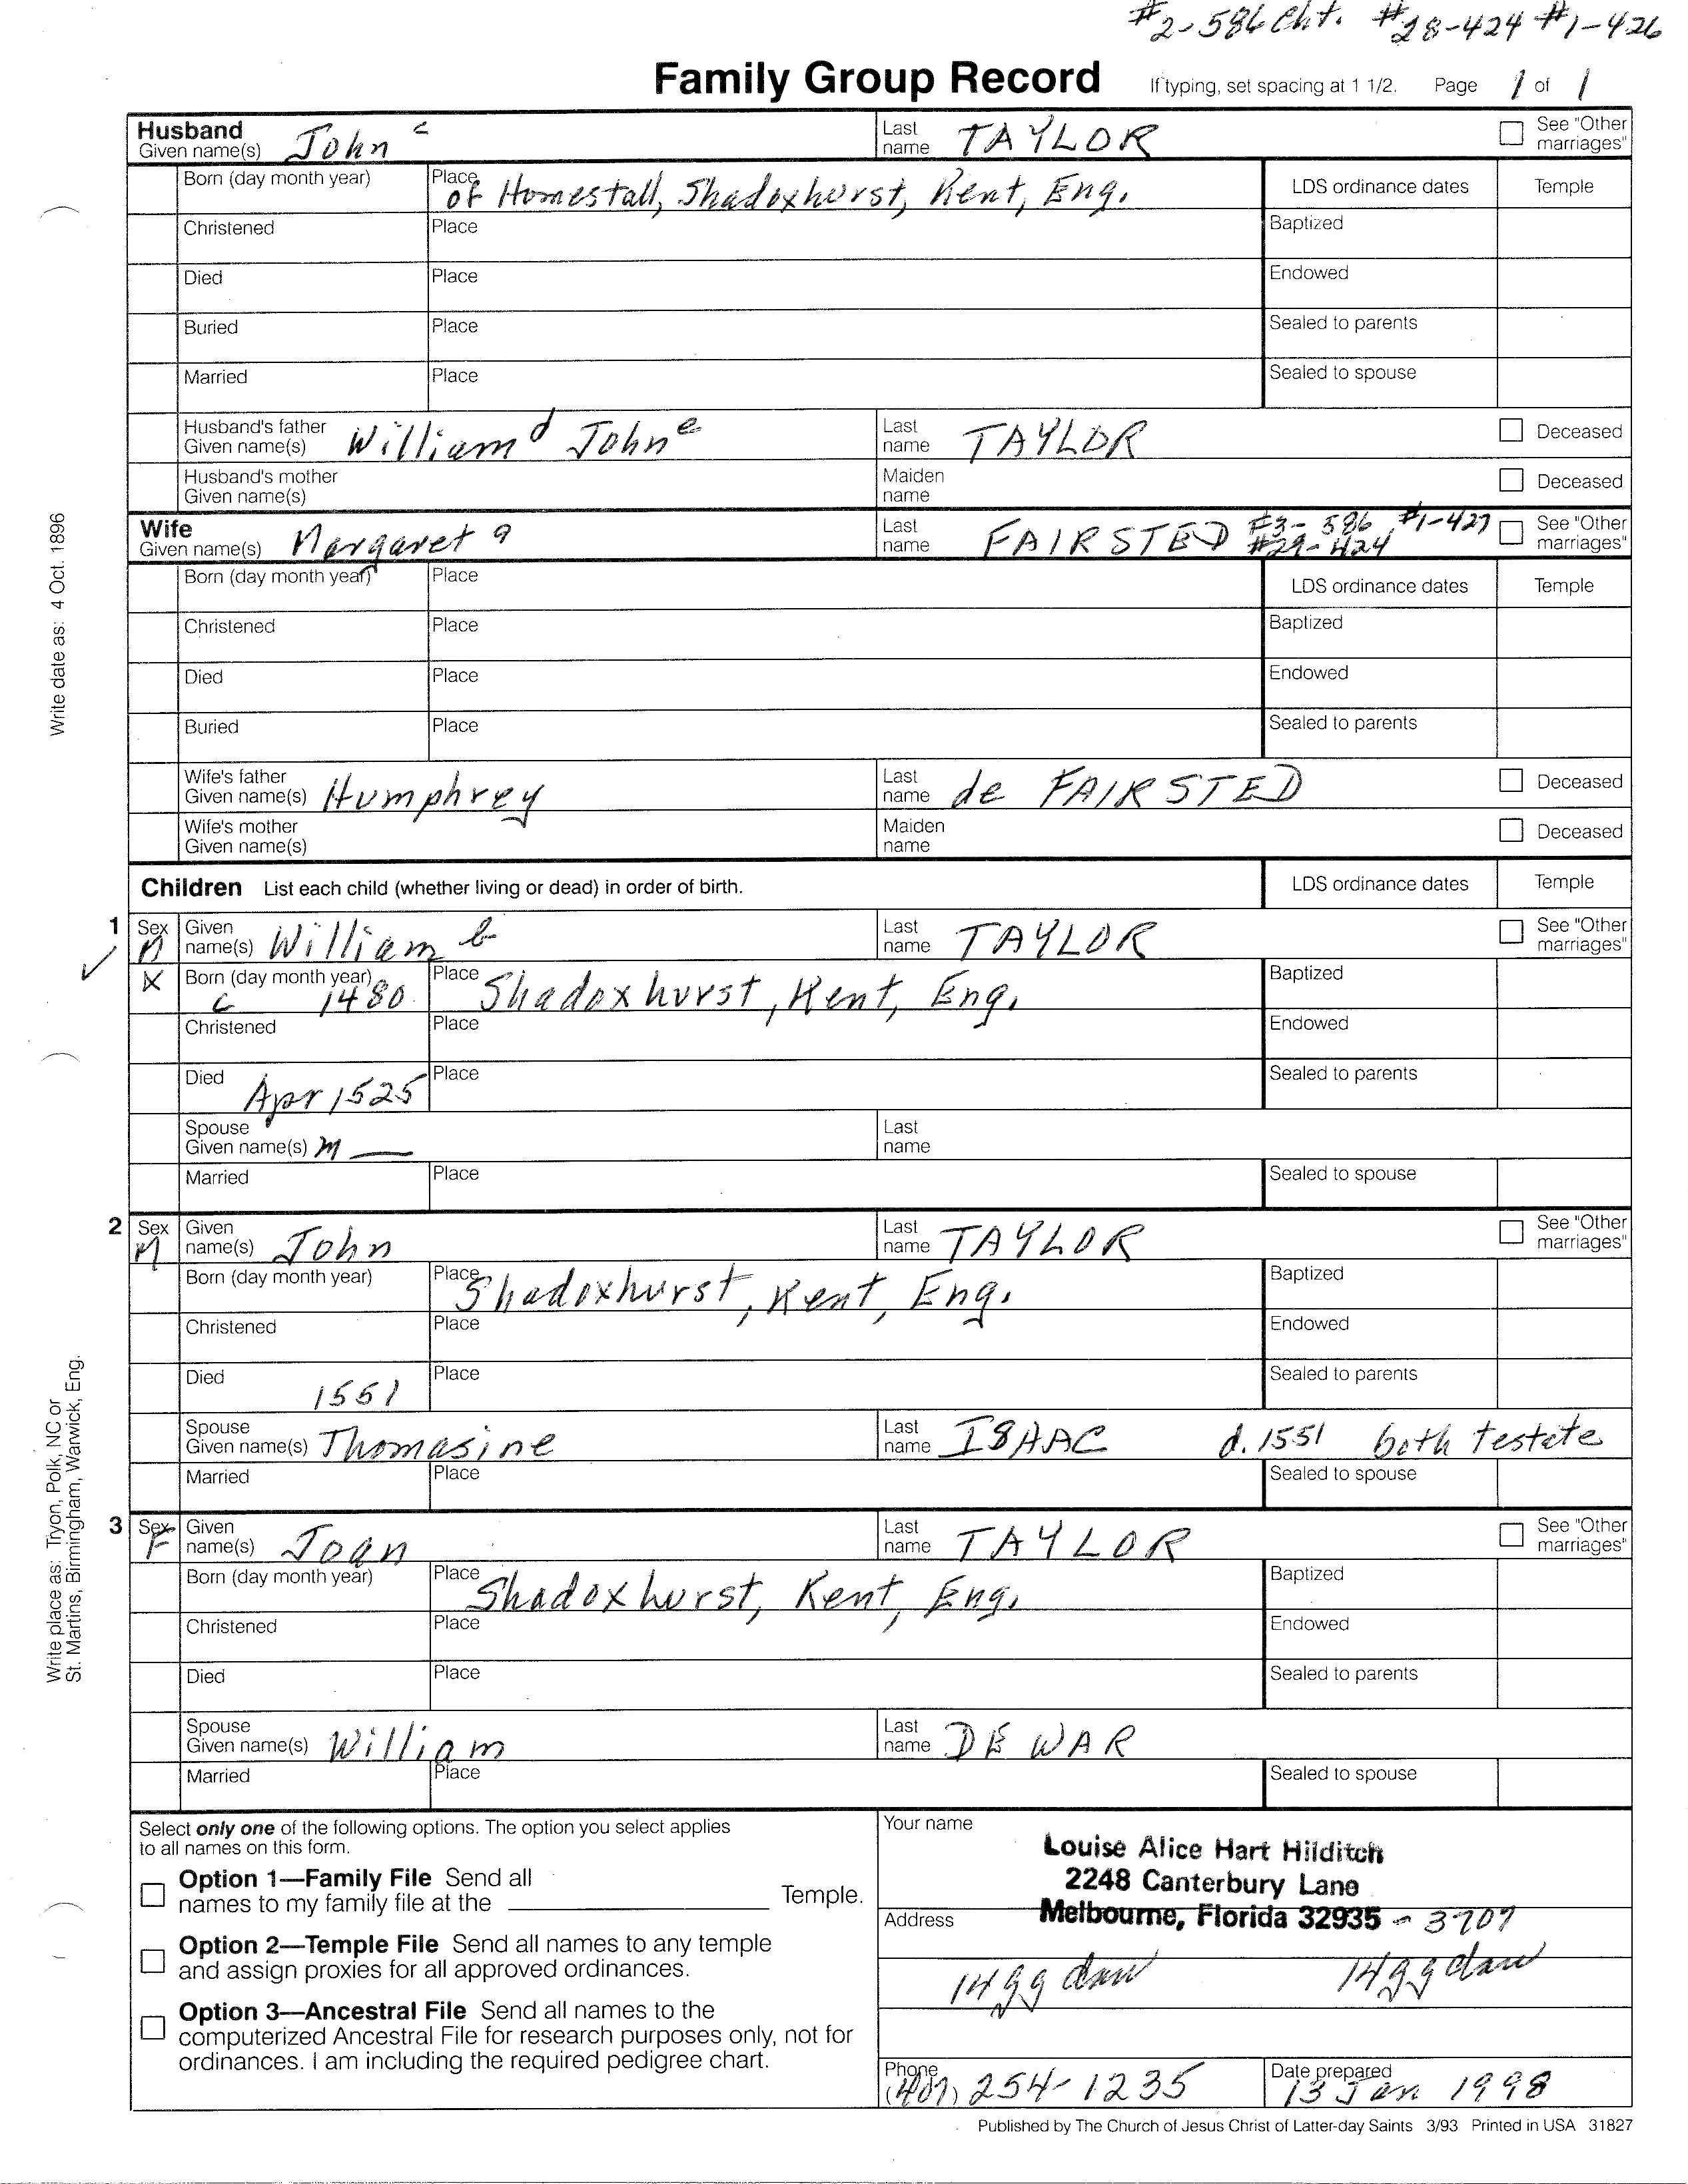 #2-586 Cht. #28-424 #1-426
Family Group Record If typing, set spacing at 1 1/2. Page 1 of 1
Husband
Given name(s) John c Last name TAYLOR See "Other marriages"
Born (day month year) Place of Homestall, Shadoxhurst, Kent, Eng. LDS ordinance dates Temple
Christened Place Baptized
Died Place Endowed
Buried Place Sealed to parents
Married Place Sealed to spouse
Husband's father Given name(s) William d John e Last name TAYLOR Deceased
Husband's mother Given name(s) Maiden name Deceased
Wife
Given name(s) Margaret 9 Last name FAIRSTED #3-586 #1-427 #29-424 See "Other marriages"
Born (day month year) Place LDS ordinance dates Temple
Christened Place Baptized
Died Place Endowed
Buried Place Sealed to parents
Wife's father Given name(s) Humphrey Last name de FAIRSTED Deceased
Wife's mother Given name(s) Maiden name Deceased
Children List each child (whether living or dead) in order of birth. LDS ordinance dates Temple
1 Sex M Given name(s) William b Last name TAYLOR See "Other marriages"
X Born (day month year) c 1480 Place Shadoxhurst, Kent, Eng. Baptized
Christened Place Endowed
Died Apr 1525 Place Sealed to parents
Spouse Given name(s) M — Last name
Married Place Sealed to spouse
2 Sex M Given name(s) John Last name TAYLOR See "Other marriages"
Born (day month year) Place Shadoxhurst, Kent, Eng. Baptized
Christened Place Endowed
Died 1551 Place Sealed to parents
Spouse Given name(s) Thomasine Last name ISAAC d. 1551 both testate
Married Place Sealed to spouse
3 Sex F Given name(s) Joan Last name TAYLOR See "Other marriages"
Born (day month year) Place Shadoxhurst, Kent, Eng. Baptized
Christened Place Endowed
Died Place Sealed to parents
Spouse Given name(s) William Last name DE WAR
Married Place Sealed to spouse
Select only one of the following options. The option you select applies
to all names on this form.
Option 1—Family File Send all
names to my family file at the Temple.
Option 2—Temple File Send all names to any temple
and assign proxies for all approved ordinances.
Option 3—Ancestral File Send all names to the
computerized Ancestral File for research purposes only, not for
ordinances. I am including the required pedigree chart.
Your name
Louise Alice Hart Hilditch
2248 Canterbury Lane
Address Melbourne, Florida 32935 - 3707
14 gg dau 14 gg dau
Phone (407) 254-1235 Date prepared 13 Jan 1998
Published by The Church of Jesus Christ of Latter-day Saints 3/93 Printed in USA 31827
Write date as: 4 Oct. 1896
Write place as: Tryon, Polk, NC or
St. Martins, Birmingham, Warwick, Eng.